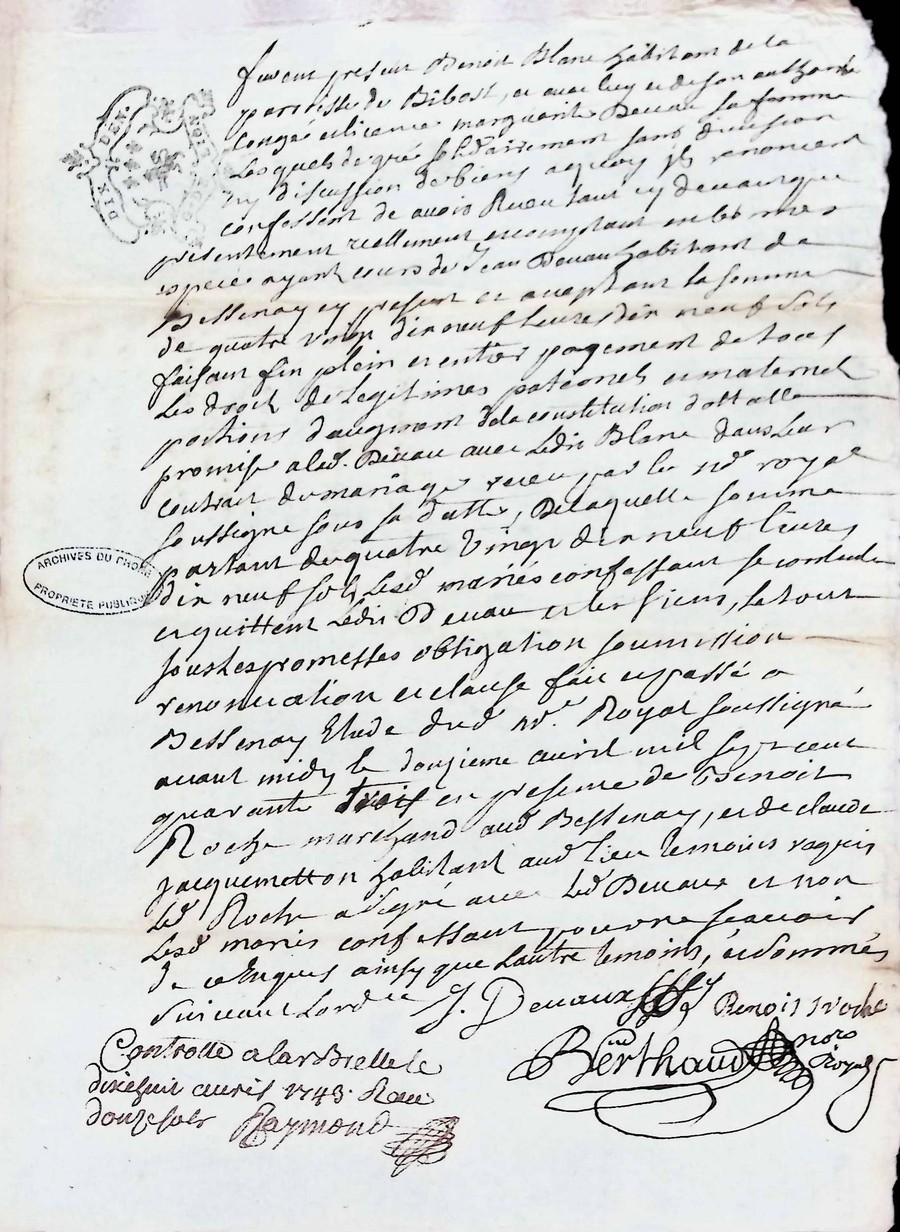 furent present Benoit Blanc habitant de la
parroisse de Bibost, et avec luy et de son authorité
congé et licence marguerite Devau sa femme
Lesquels de gré solidairement sans division
ny discussion de biens aquoy ils renoncent
confessent de avoir Receu tant cy devant que
presentement reellement et comptant en bonnes
especes ayant cours de Jean Devau habitant de
Bessenay cy present et aceptant la somme
de quatre vingt dix neuf livres dix neuf sols
faisant fin plein et entier payement de tous
Les droit de legitimes paternel et maternel
portions d'augment de la constitution dottalle
promise a lad. Devau avec Ledit Blanc dans Leur
contrat de mariage receu par le no.e royal
soussigné sous sa datte, De laquelle somme
partant de quatre vingt dix neuf livres
dix neuf sols Lesd mariés confessant se contenter
et quittent Ledit Devau et les siens, le tout
sous les promesses obligation soumission
renonciation et clause fait et passé a
Bessenay Etude dud no.e Royal soussigné
avant midy le douzieme avril mil sept cent
quarante trois en presence de Benoit
Roche marchand aud Bessenay, et de claude
jacquemetton habitant aud lieu temoins requis
Led Roche a signé avec Led Devaux et non
Lesd mariés confessant pour ne scavoir
de ce Enquis ainsy que l'autre temoins, et sommés
suivant Lord.ce J. Devaux Benoist roche
Berthaud no.re Royal
DIX DEN.
NOIEL
ARCHIVES DU RHONE
PROPRIETE PUBLIQUE
Controllé a larBrelle le
dixehuit avril 1743. Receu
douze sols Raymond